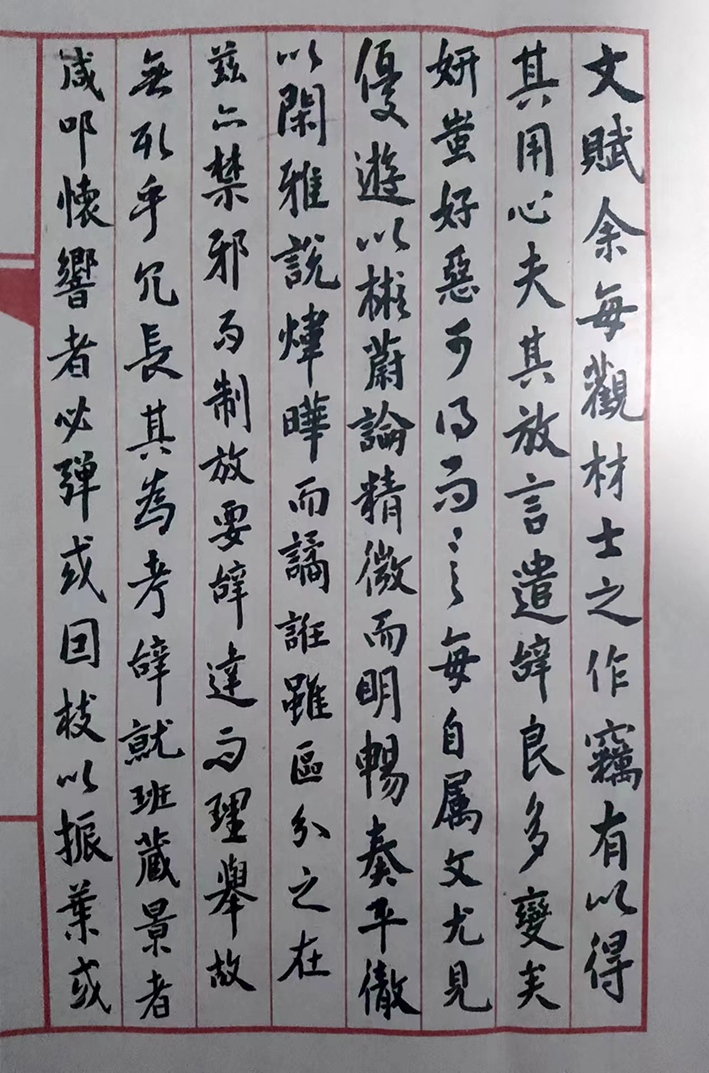 文賦余每觀材士之作竊有以得
其用心夫其放言遣辭良多變矣
妍蚩好惡可得而言々每自属文尤見
優遊以彬蔚論精微而明暢奏平徹
以閑雅說煒曄而譎誑雖區分之在
茲亦禁邪而制放要辭達而理舉故
無取乎冗長其為考辭就班藏景者
咸叩懷響者必弹或因枝以振葉或